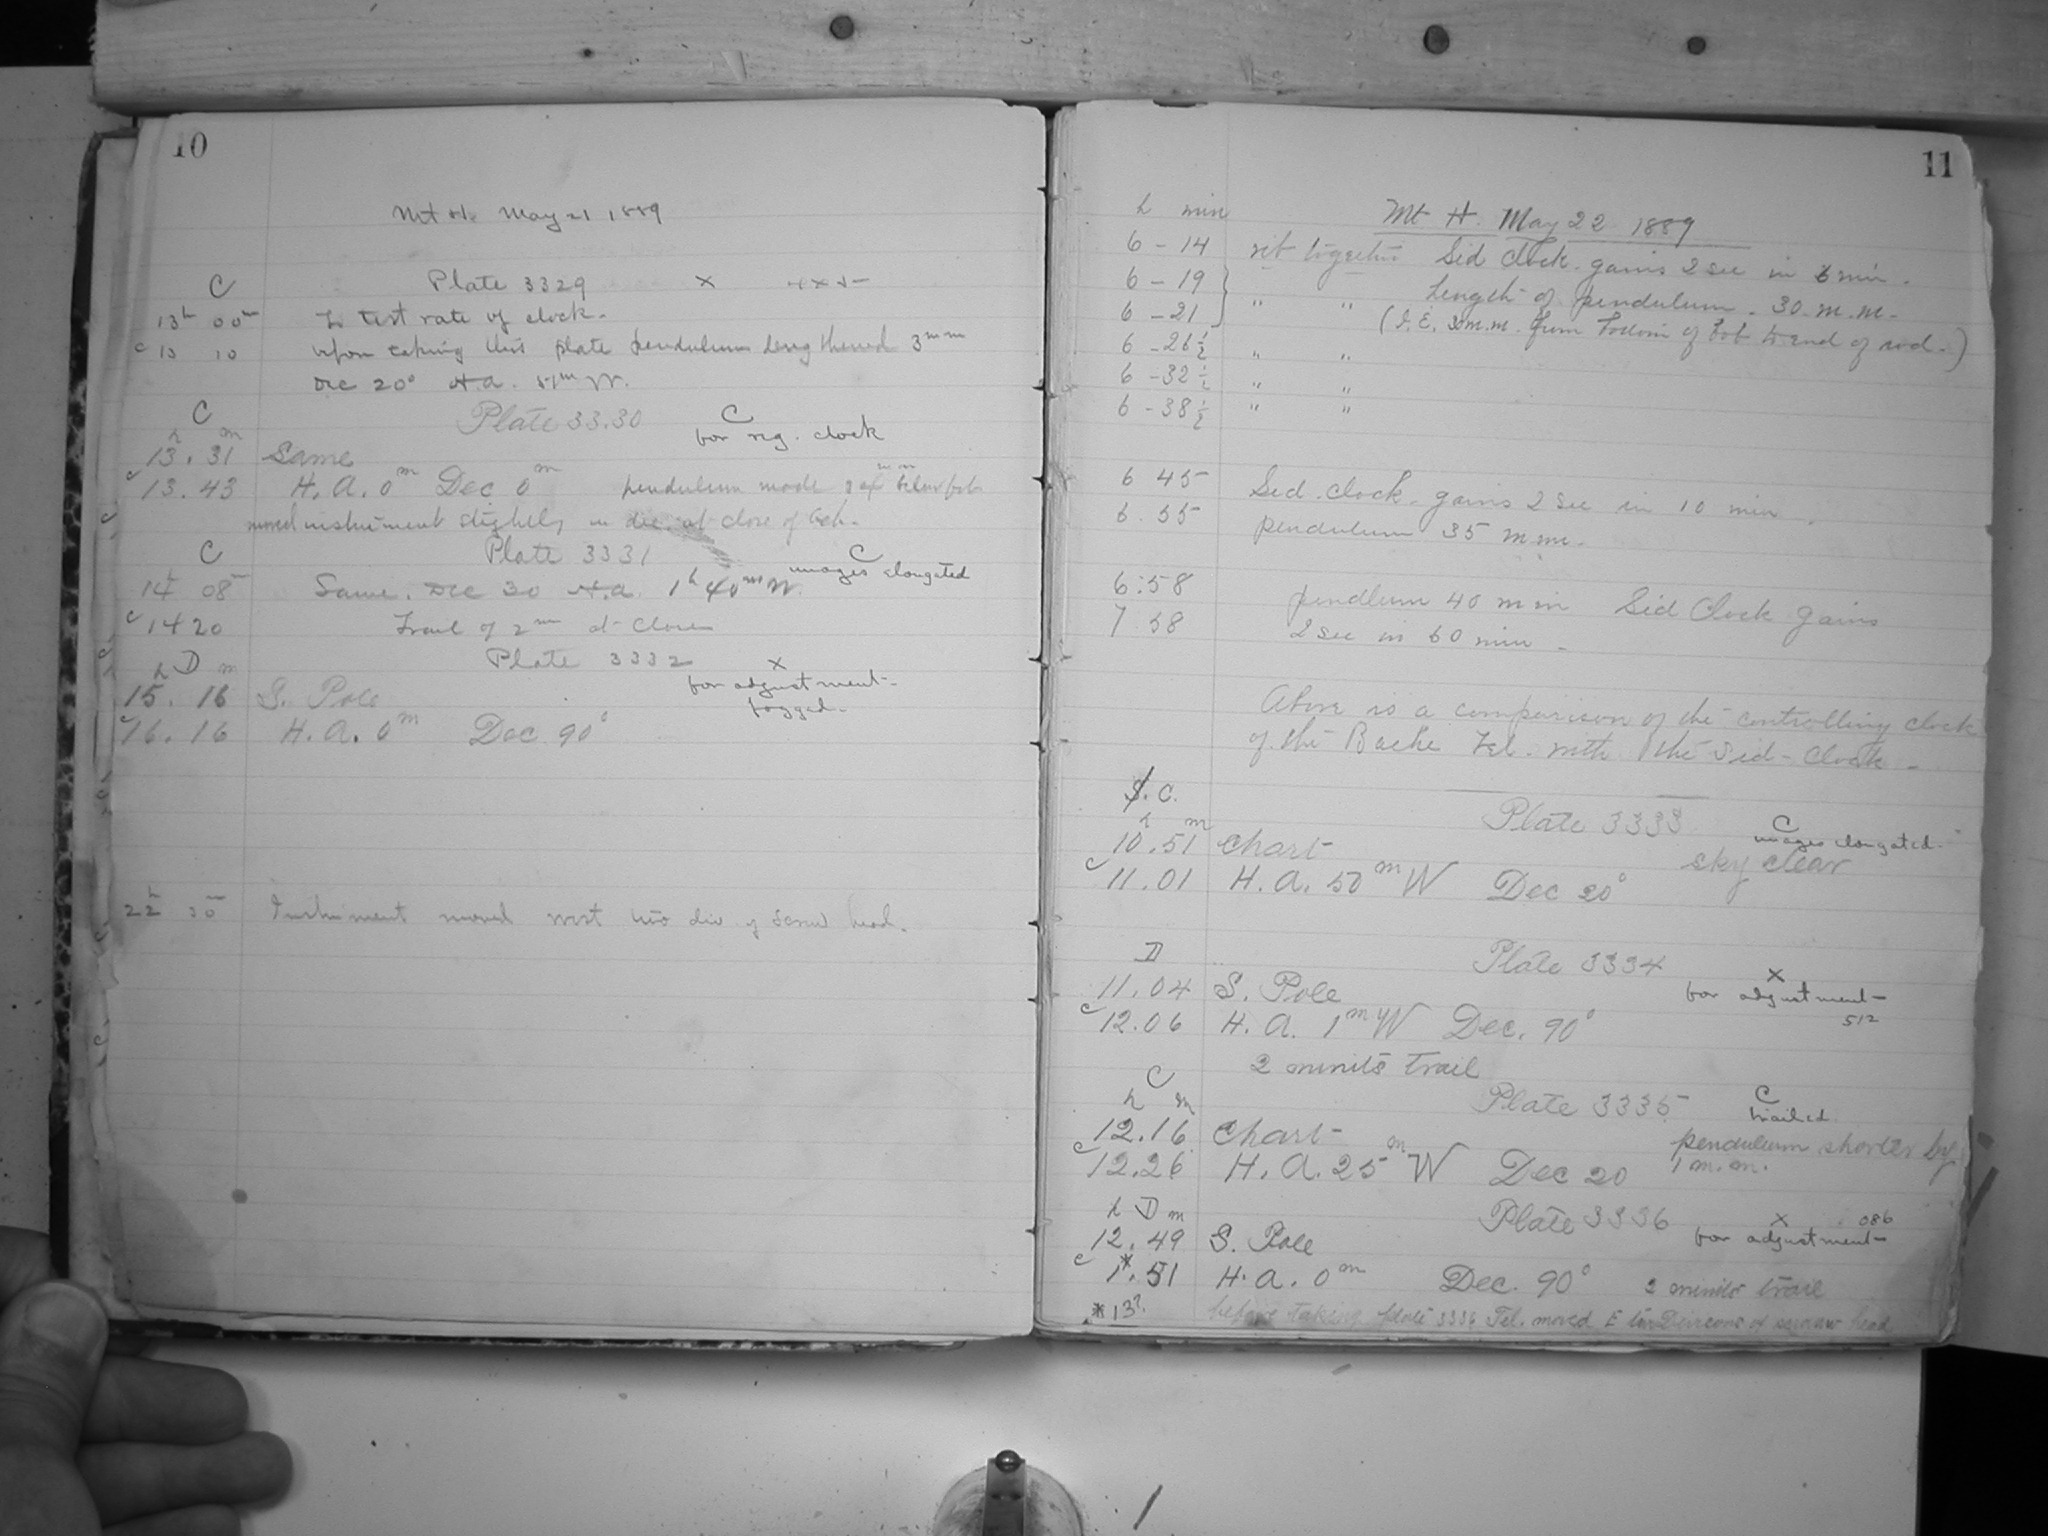 10
Mt H. May 21 1889
C Plate 3329 x
13h 00m To test rate of clock.
c 13 10 upon taking this plate pendulum lengthened 3mm
Dec 20° H.A. 51m W.
C Plate 33.30 C
h m for reg. clock
13.31 Same
c 13.43 H. A. 0m Dec 0m pendulum made mm below bob
moved instrument slightly in dec. at close of
C Plate 3331 C
14h 08m Same. Dec 30 H.A. 1h 40m W. images elongated
c 14 20 Trail of 2m at close
h D m Plate 3332 x
15. 16 S. Pole for adjustment
fogged.
c 16. 16 H. A. 0m Dec 90°
22h 30m Instrument moved west two div of screw head.
11
h min Mt H. May 22 1889
6 - 14 set together Sid Clock gains 2 sec in 6 min.
6 - 19 } Length of pendulum. 30 m.m.
6 - 21 } " " (I.E. 30 m.m. from bottom of bob to end of rod.)
6 - 26 1/2 " "
6 - 32 1/2 " "
6 - 38 1/2 " "
6 45 Sid. clock gains 2 sec in 10 min.
6. 55 pendulum 35 m.m.
6:58 pendlum 40 m m Sid Clock gains
7.58 2 sec in 60 min.
Above is a comparison of the controlling clock
of the Bache Tel. with the Sid-Clock.
S. C. Plate 3333 C
h m images elongated.
10.51 Chart sky clear
c 11.01 H. A. 50m W Dec 20°
D Plate 3334 x
11.04 S. Pole for adjustment
512
c 12.06 H. A. 1m W Dec. 90°
2 minits trail
C Plate 3335 C
h m trailed.
12.16 Chart pendulum shorter by
c 12.26 H. A. 25m W Dec 20 1 m.m.
h D m Plate 3336 x 086
12. 49 S. Pole for adjustment
c 1*. 51 H. A. 0m Dec. 90° 2 minits trail
*13? before taking plate 3336 Tel. moved E two of head